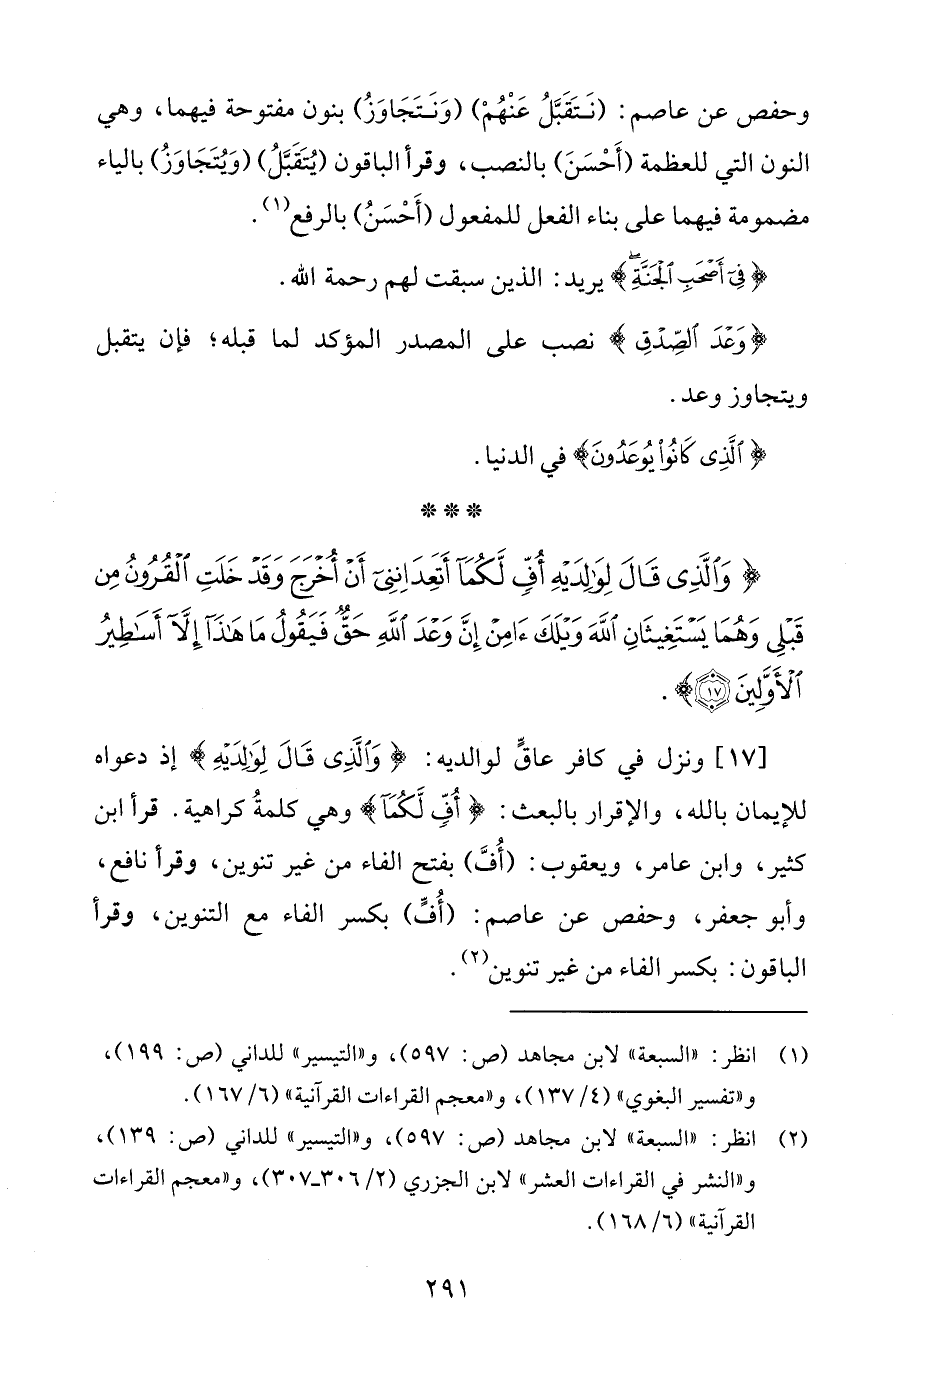 وحفص عن عاصم: (نَتَقَبَّلُ عَنْهُمْ) (وَنَتَجَاوَزُ) بنون مفتوحة فيهما، وهي
النون التي للعظمة (أَحْسَنَ) بالنصب، وقرأ الباقون (يُتَقَبَّلُ) (وَيُتَجَاوَزُ) بالياء
مضمومة فيهما على بناء الفعل للمفعول (أَحْسَنُ) بالرفع(١).
﴿فِىٓ أَصْحَٰبِ ٱلْجَنَّةِ ۖ﴾ يريد: الذين سبقت لهم رحمة الله.
﴿وَعْدَ ٱلصِّدْقِ﴾ نصب على المصدر المؤكد لما قبله؛ فإن يتقبل
ويتجاوز وعد.
﴿ٱلَّذِى كَانُوا۟ يُوعَدُونَ﴾ في الدنيا.
***
﴿وَٱلَّذِى قَالَ لِوَٰلِدَيْهِ أُفٍّ لَّكُمَآ أَتَعِدَانِنِىٓ أَنْ أُخْرَجَ وَقَدْ خَلَتِ ٱلْقُرُونُ مِن
قَبْلِى وَهُمَا يَسْتَغِيثَانِ ٱللَّهَ وَيْلَكَ ءَامِنْ إِنَّ وَعْدَ ٱللَّهِ حَقٌّ فَيَقُولُ مَا هَٰذَآ إِلَّآ أَسَٰطِيرُ
ٱلْأَوَّلِينَ ١٧﴾.
[١٧] ونزل في كافر عاقٍّ لوالديه: ﴿وَٱلَّذِى قَالَ لِوَٰلِدَيْهِ﴾ إذ دعواه
للإيمان بالله، والإقرار بالبعث: ﴿أُفٍّ لَّكُمَآ﴾ وهي كلمةُ كراهية. قرأ ابن
كثير، وابن عامر، ويعقوب: (أُفَّ) بفتح الفاء من غير تنوين، وقرأ نافع،
وأبو جعفر، وحفص عن عاصم: (أُفٍّ) بكسر الفاء مع التنوين، وقرأ
الباقون: بكسر الفاء من غير تنوين(٢).
(١) انظر: «السبعة» لابن مجاهد (ص: ٥٩٧)، و«التيسير» للداني (ص: ١٩٩)،
و«تفسير البغوي» (٤/ ١٣٧)، و«معجم القراءات القرآنية» (٦/ ١٦٧).
(٢) انظر: «السبعة» لابن مجاهد (ص: ٥٩٧)، و«التيسير» للداني (ص: ١٣٩)،
و«النشر في القراءات العشر» لابن الجزري (٢/ ٣٠٦-٣٠٧)، و«معجم القراءات
القرآنية» (٦/ ١٦٨).
٢٩١